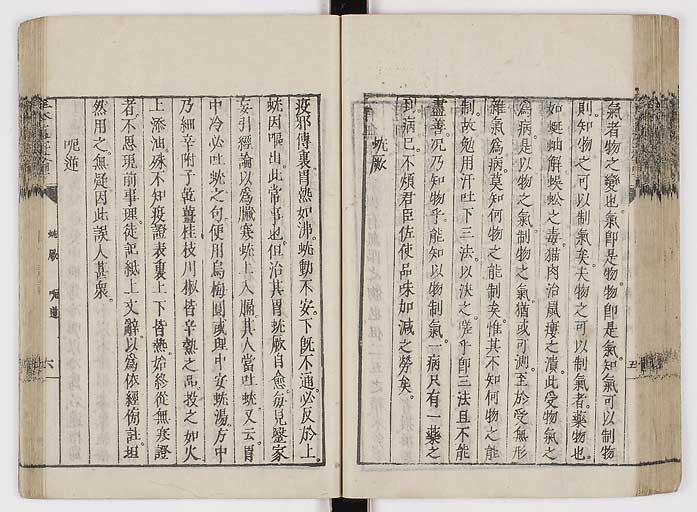 氣者物之變也氣卽是物物卽是氣知氣可以制物
則知物之可以制氣矣夫物之可以制氣者藥物也
如蜒蚰解蜈蚣之毒猫肉治鼠瘻之潰此受物氣之
爲病是以物之氣制物之氣猶或可測至於受無形
雜氣爲病莫知何物之能制矣惟其不知何物之能
制故勉用汗吐下三法以決之嗟乎卽三法且不能
盡善况乃知物乎能知以物制氣一病只有一藥之
到病已不煩君臣佐使品味加減之勞矣
蚘厥
疫邪傳裏胃熱如沸蚘動不安下旣不通必反於上
蚘因嘔出此常事也但治其胃蚘厥自愈每見醫家
妄引經論以爲臟寒蚘上入膈其人當吐蚘又云胃
中冷必吐蚘之句便用烏梅圓或理中安蚘湯方中
乃細辛附子乾薑桂枝川椒皆辛熱之品投之如火
上添油殊不知疫證表裏上下皆熱始終從無寒證
者不思現前事理徒記紙上文辭以爲依經傍註坦
然用之無疑因此誤人甚衆
呃逆
蚘厥 呃逆
六
五